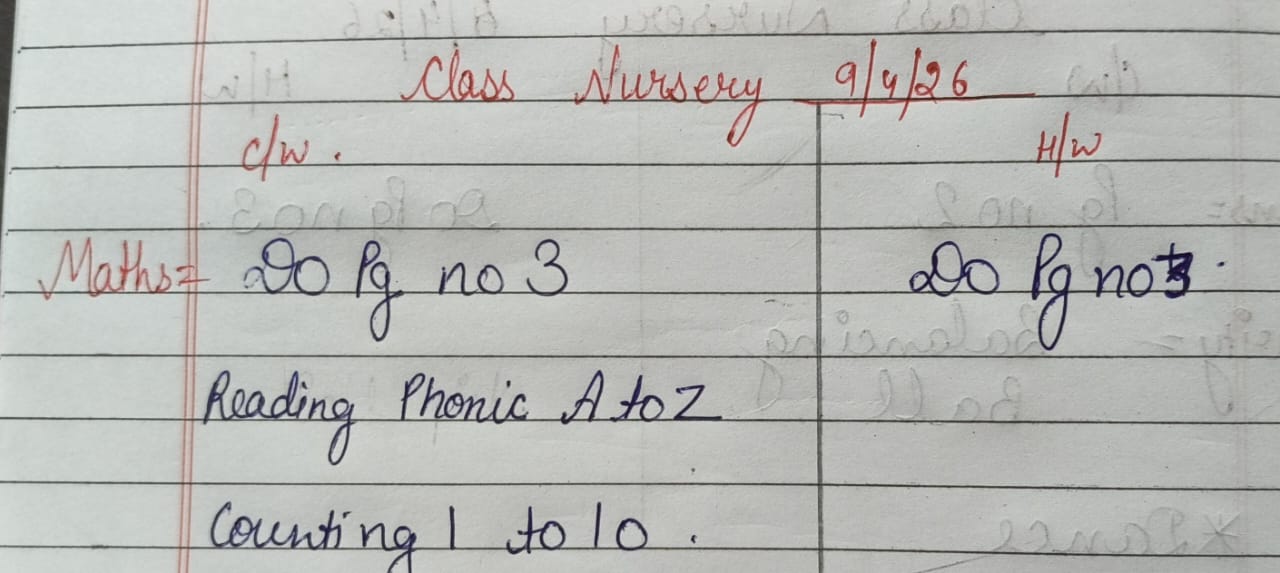 Class Nursery 9/4/26
C/W. H/W
Maths= Do Pg no 3 Do Pg no
Reading Phonic A to Z
Counting 1 to 10.